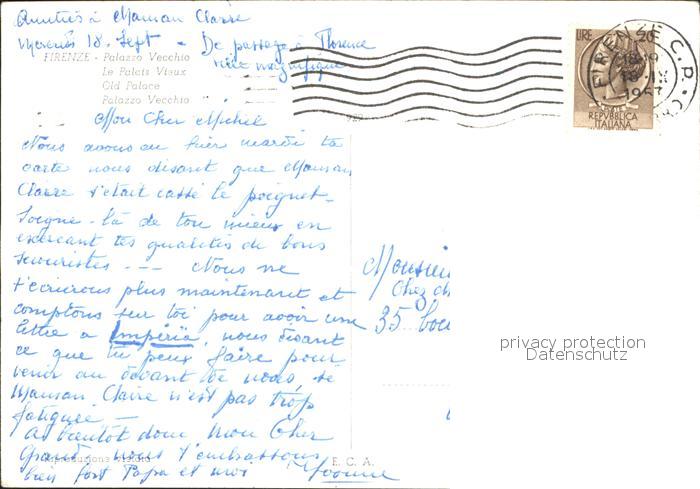 Amitiés à Maman Claire
Mercredi 18. Sept - De passage à Florence
ville magnifique
FIRENZE - Palazzo Vecchio
Le Palais Vieux
Old Palace
Palazzo Vecchio
LIRE 20
REPVBBLICA
ITALIANA
FIRENZE C.P.
18-19
18.IX
1957
Mon Cher Michel
Nous avons eu hier mardi ta
carte nous disant que Maman
Claire s'était cassé le poignet-
Soigne-là de ton mieux en
exercant tes qualités de bons
secouristes --- Nous ne
t'écrirons plus maintenant et
comptons sur toi pour avoir une
lettre a Impéria, nous disant
ce que tu peux faire pour
venir au devant de nous, si
Maman Claire n'est pas trop
fatiguée -
A bientôt donc, mon Cher
Grand nous t'embrassons
bien fort Papa et moi Yvonne
Monsieu
Chez
35 bou
privacy protection
Datenschutz
E. C. A.